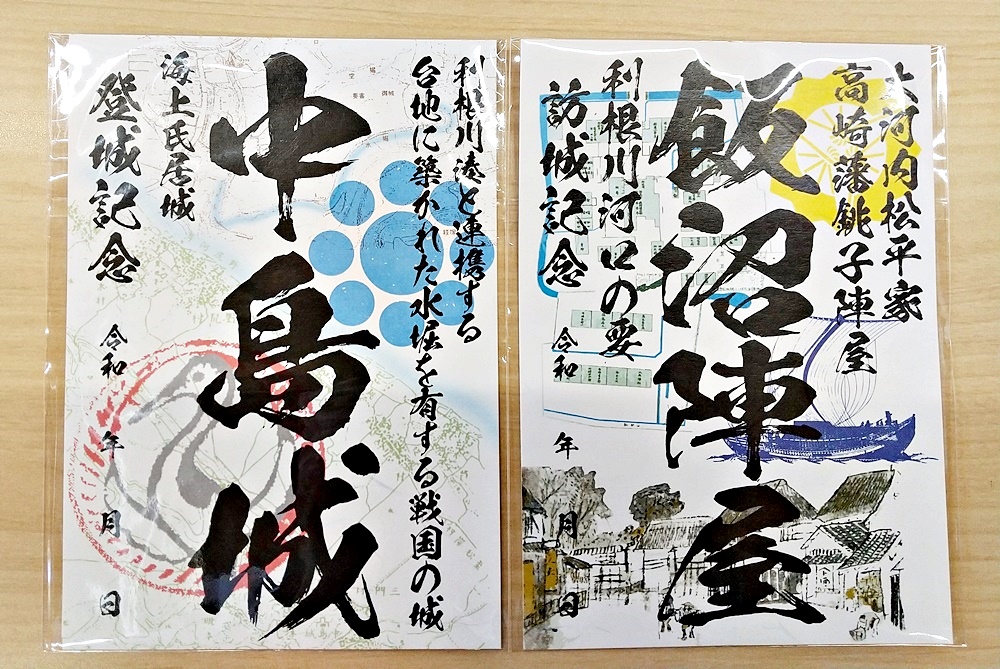 利根川湊と連携する
台地に築かれた水堀を有する戦国の城
中島城
海上氏居城
登城記念
令和 年 月 日
大河内松平家
高崎藩銚子陣屋
飯沼陣屋
利根川河口の要
訪城記念
令和 年 月 日